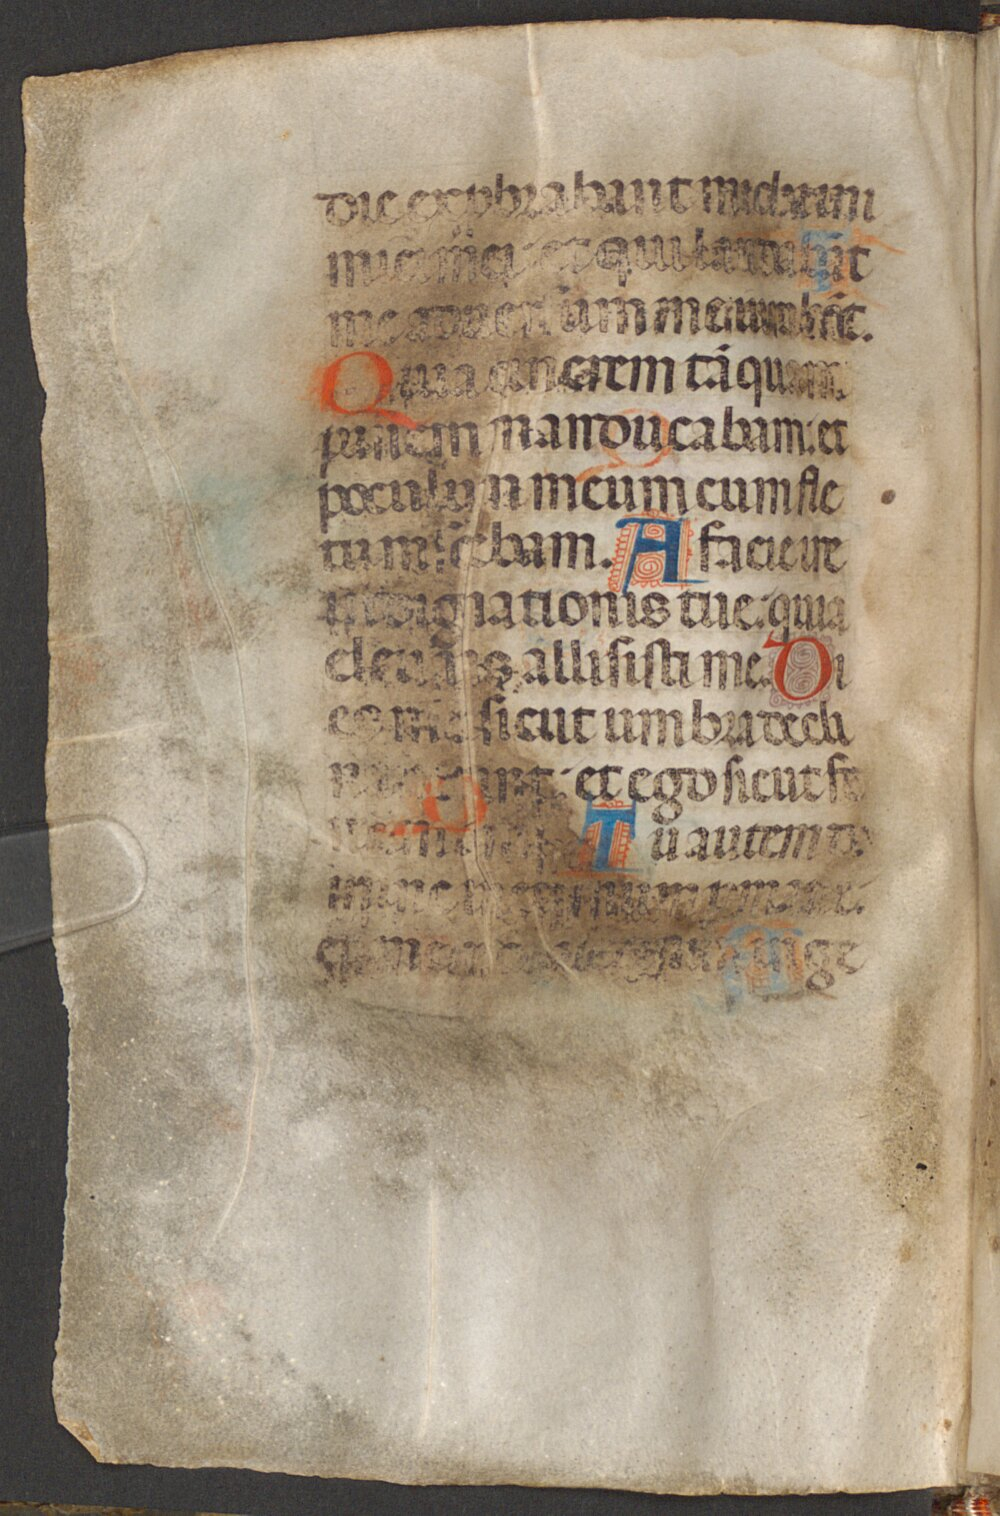 die exprobrabant michi inimi
mici mei: et qui laudabāt
me adversum me iurabāt.
Quia cinerem tāquam
panem manducabam: et
poculum meum cum fle
tu miscebam. A facie ire
indignationis tue: quia
elevans allisisti me. Di
es mei sicut umbra decli
naverunt: et ego sicut fe
num arui. Tu autem do
mine in eternum permanes: